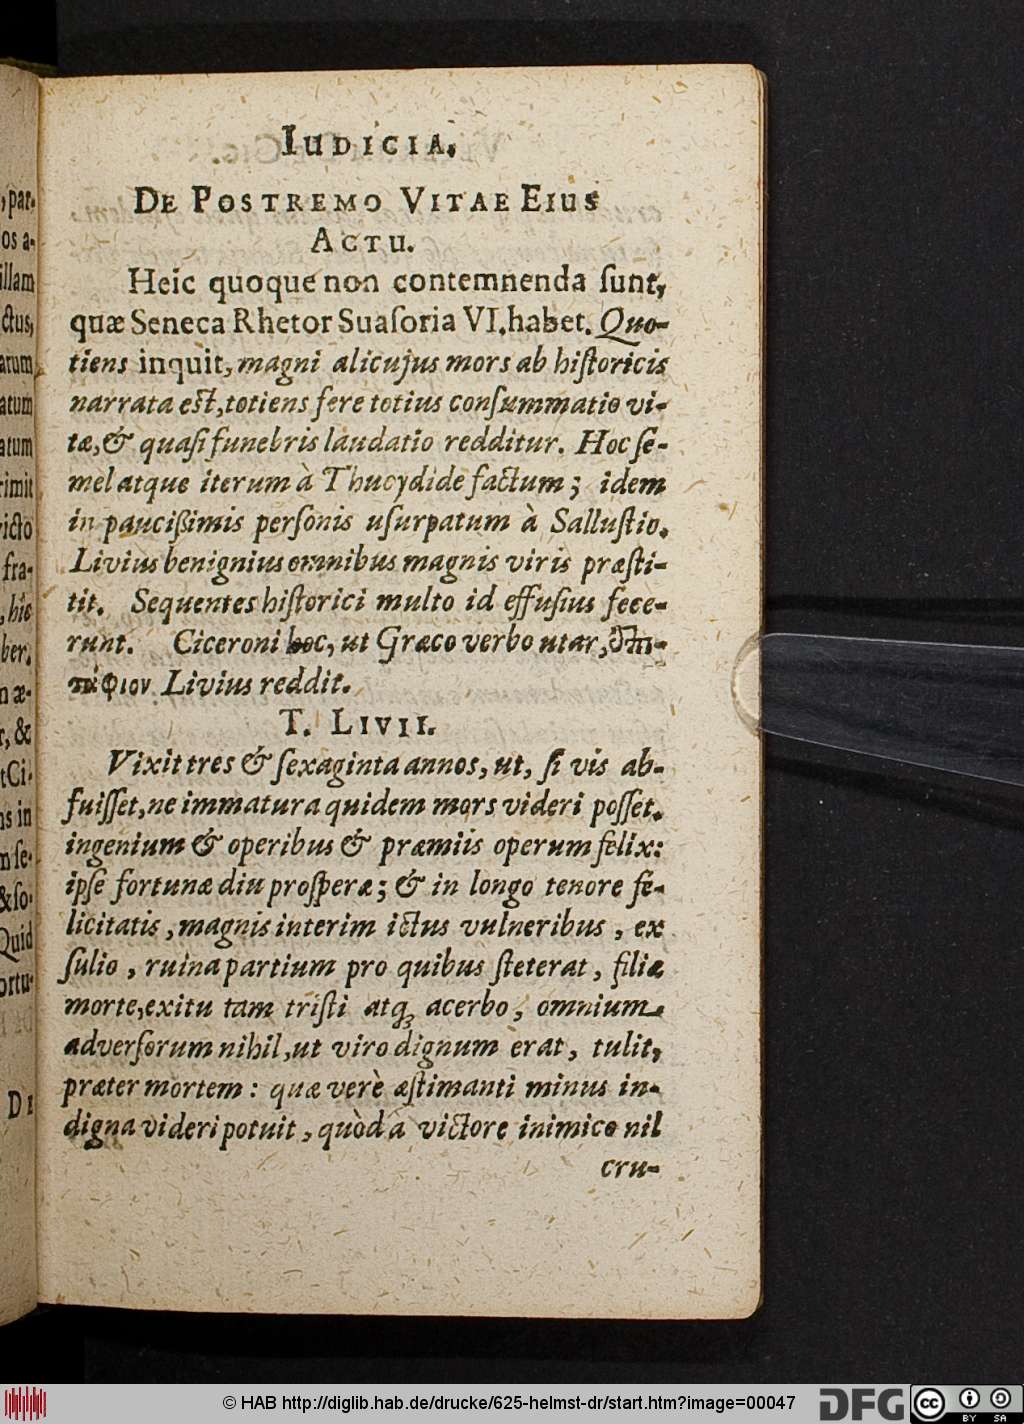 IUDICIA.
DE POSTREMO VITAE EIUS
ACTU.
Heic quoque non contemnenda ſunt,
quæ Seneca Rhetor Suaſoria VI. habet. Quo-
tiens inquit, magni alicujus mors ab hiſtoricis
narrata eſt, totiens fere totius conſummatio vi-
tæ, & quaſi funebris laudatio redditur. Hoc ſe-
mel atque iterum à Thucydide factum; idem
in pauciſſimis perſonis uſurpatum à Salluſtio.
Livius benignius omnibus magnis viris præſti-
tit. Sequentes hiſtorici multo id effuſius fece-
runt. Ciceroni hoc, ut Græco verbo utar, ἐπι-
τάφιον Livius reddit.
T. LIVII.
Vixit tres & ſexaginta annos, ut, ſi vis ab-
fuiſſet, ne immatura quidem mors videri poſſet.
ingenium & operibus & præmiis operum felix:
ipſe fortunæ diu proſperæ; & in longo tenore fe-
licitatis, magnis interim ictus vulneribus, ex
ſulio, ruina partium pro quibus ſteterat, filiæ
morte, exitu tam triſti atq; acerbo, omnium
adverſorum nihil, ut viro dignum erat, tulit,
præter mortem: quæ verè æſtimanti minus in-
digna videri potuit, quòd à victore inimico nil
cru-
, par-
os a-
illam
ctus,
arum
atum
atum
rimit
victo
fra-
, hîc
ber.
n æ-
r, &
t Ci-
ns in
n ſe-
& ſo-
Quid
ortu-
DI
© HAB http://diglib.hab.de/drucke/625-helmst-dr/start.htm?image=00047
DFG
cc
BY SA